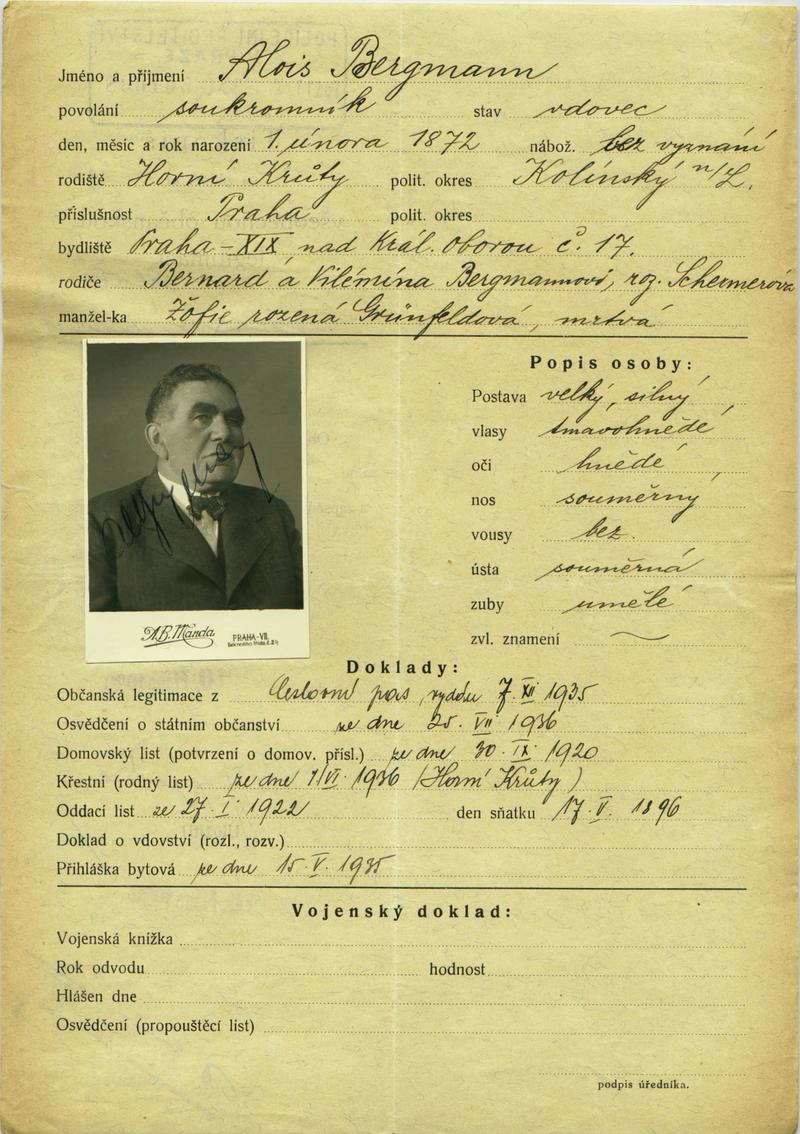 Jméno a příjmení Alois Bergmann
povolání soukromník stav vdovec
den, měsíc a rok narození 1. února 1872 nábož. bez vyznání
rodiště Horní Krůty polit. okres Kolínský n/L.
příslušnost Praha polit. okres
bydliště Praha-XIX nad Král. oborou č. 17.
rodiče Bernard a Vilémína Bergmannovi, roz. Schermerová
manžel-ka Žofie rozená Grünfeldová, mrtvá
Popis osoby:
Postava velký, silný
vlasy tmavohnědé
oči hnědé
nos souměrný
vousy bez
ústa souměrná
zuby umělé
zvl. znamení
A.B. Manda PRAHA-VII.
Doklady:
Občanská legitimace z Cestovní pas, vydán 7. XII 1935
Osvědčení o státním občanství ze dne 25. VII 1936
Domovský list (potvrzení o domov. přísl.) ze dne 30. IX. 1920
Křestní (rodný list) ze dne 1/VI. 1936 (Horní Krůty)
Oddací list ze 27. I. 1922 den sňatku 17. V. 1896
Doklad o vdovství (rozl., rozv.)
Přihláška bytová ze dne 15. V. 1935
Vojenský doklad:
Vojenská knížka
Rok odvodu hodnost
Hlášen dne
Osvědčení (propouštěcí list)
podpis úředníka.